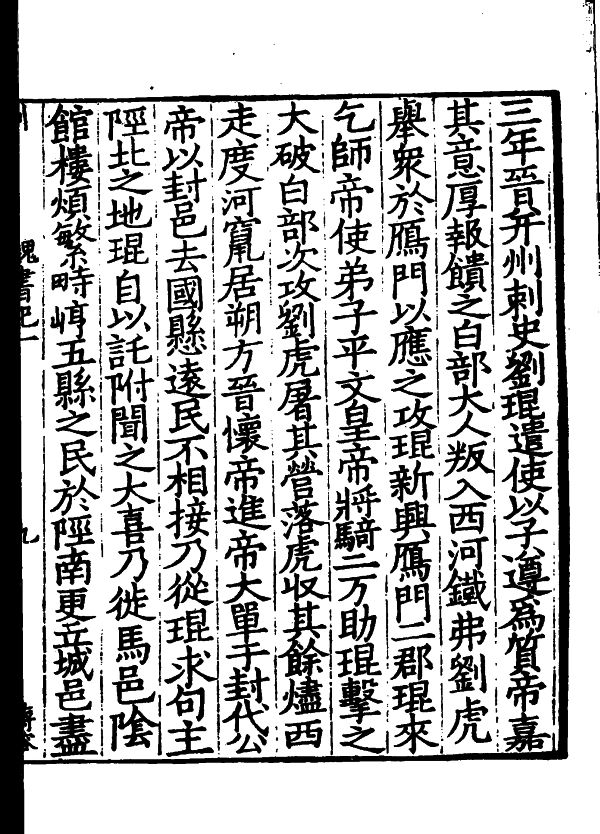 三年晉并州刺史劉琨遣使以子遵爲質帝嘉
其意厚報饋之白部大人叛入西河鐵弗劉虎
舉衆於鴈門以應之攻琨新興鴈門二郡琨來
乞師帝使弟子平文皇帝將騎二万助琨擊之
大破白部次攻劉虎屠其營落虎收其餘燼西
走度河竄居朔方晉懷帝進帝大單于封代公
帝以封邑去國懸遠民不相接乃從琨求句主
陘北之地琨自以託附聞之大喜乃徙馬邑陰
館樓煩繁畤崞五縣之民於陘南更立城邑盡
魏書紀一
九